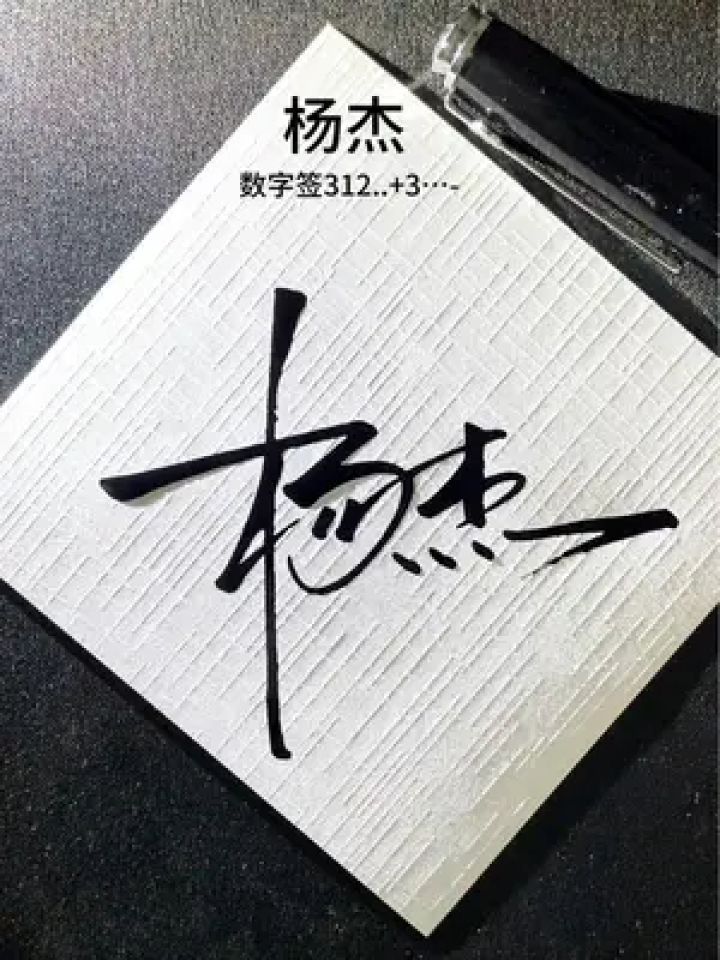 杨杰
数字签312..+3…-
杨杰